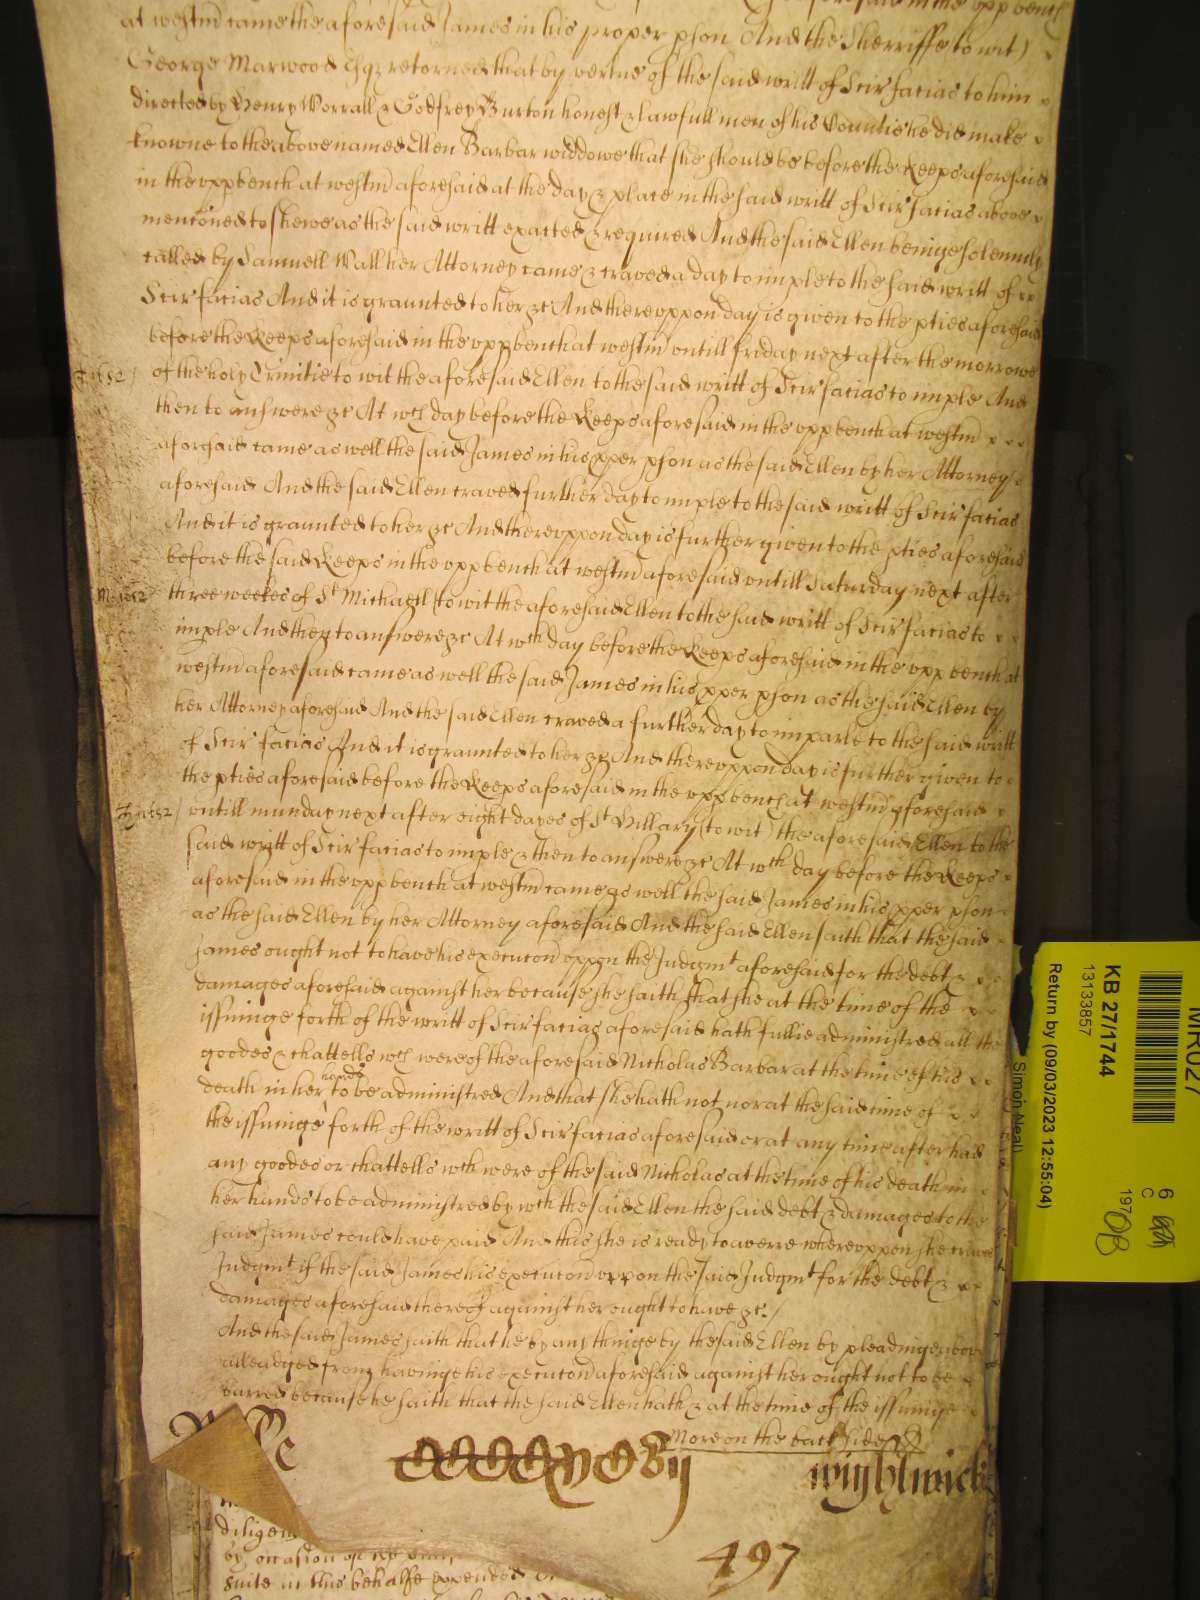 aforesaid in the upp bench
at westm came the aforesaid James in his proper pson And the Sherriffe to wit)
George Marwood Esqz retorned that by vertue of the said writt of Scir facias to him
directed by Henry Worrall & Godfrey Burton honest & lawfull men of his Countie he did make
knowne to the above named Ellen Barbar widdowe that she should be before the Keeps aforesaid
in the upp bench at westm aforesaid at the day & place in the said writt of Scir facias above
menconed to shewe as the said writt exacted & required And the said Ellen beinge solemnly
called by Samuell Wall her Attorney came & craved a day to imple to the said writt of
Scir facias And it is graunted to her &c And thereuppon day is given to the pties aforesaid
before the Keeps aforesaid in the upp bench at westm untill friday next after the morrowe
of the holy Trinitie to wit the aforesaid Ellen to the said writt of Scir facias to imple And
then to answere &c At wch day before the Keeps aforesaid in the upp bench at westm
aforesaid came as well the said James in his pper pson as the said Ellen by her Attorney
aforesaid And the said Ellen craved further day to imple to the said writt of Scir facias
And it is graunted to her &c And thereuppon day is further given to the pties aforesaid
before the said Keeps in the upp bench at westm aforesaid untill Saturday next after
M 1652
three weekes of St Michaell to wit the aforesaid Ellen to the said writt of Scir facias to
imple And then to answere &c At wch day before the Keeps aforesaid in the upp bench at
westm aforesaid came as well the said James in his pper pson as the said Ellen by
her Attorney aforesaid And the said Ellen craved a further day to imparle to the said writt
of Scir facias And it is graunted to her &c And thereuppon day is further given to
the pties aforesaid before the Keeps aforesaid in the upp bench at westm aforesaid
untill munday next after eight dayes of St Hillary (to wit) the aforesaid Ellen to the
said writt of Scir facias to imple & then to answere &c At wch day before the Keeps
aforesaid in the upp bench at westm came as well the said James in his pper pson
as the said Ellen by her Attorney aforesaid And the said Ellen saith that the said
James ought not to have his execucon uppon the Judgmt aforesaid for the debt &
damages aforesaid against her because she saith that she at the time of the
issuinge forth of the writt of Scir facias aforesaid hath fullie administred all the
goodes & chattells wch were of the aforesaid Nicholas Barbar at the time of his
hands
death in her to be administred And that she hath not nor at the said time of
the issuinge forth of the writt of Scir facias aforesaid or at any time after had
any goodes or chattells wch were of the said Nicholas at the time of his death in
her hands to be administred by wch the said Ellen the said debt & damages to the
said James could have paid And this she is ready to averre whereuppon she craves
Judgmt if the said James his execucon uppon the said Judgmt for the debt &
damages aforesaid thereof against her ought to have &c./
And the said James saith that he by any thinge by the said Ellen by pleadinge above
alleadged from havinge his execucon aforesaid against her ought not to be
barred because he saith that the said Ellen hath & at the time of the issuinge
More on the back side
wightwick
497
by, occasion of
suite in this behalfe expended
MR027
KB 27/1744
13133857
Return by (09/03/2023 12:55:04)
Simon Neal
6
C
197